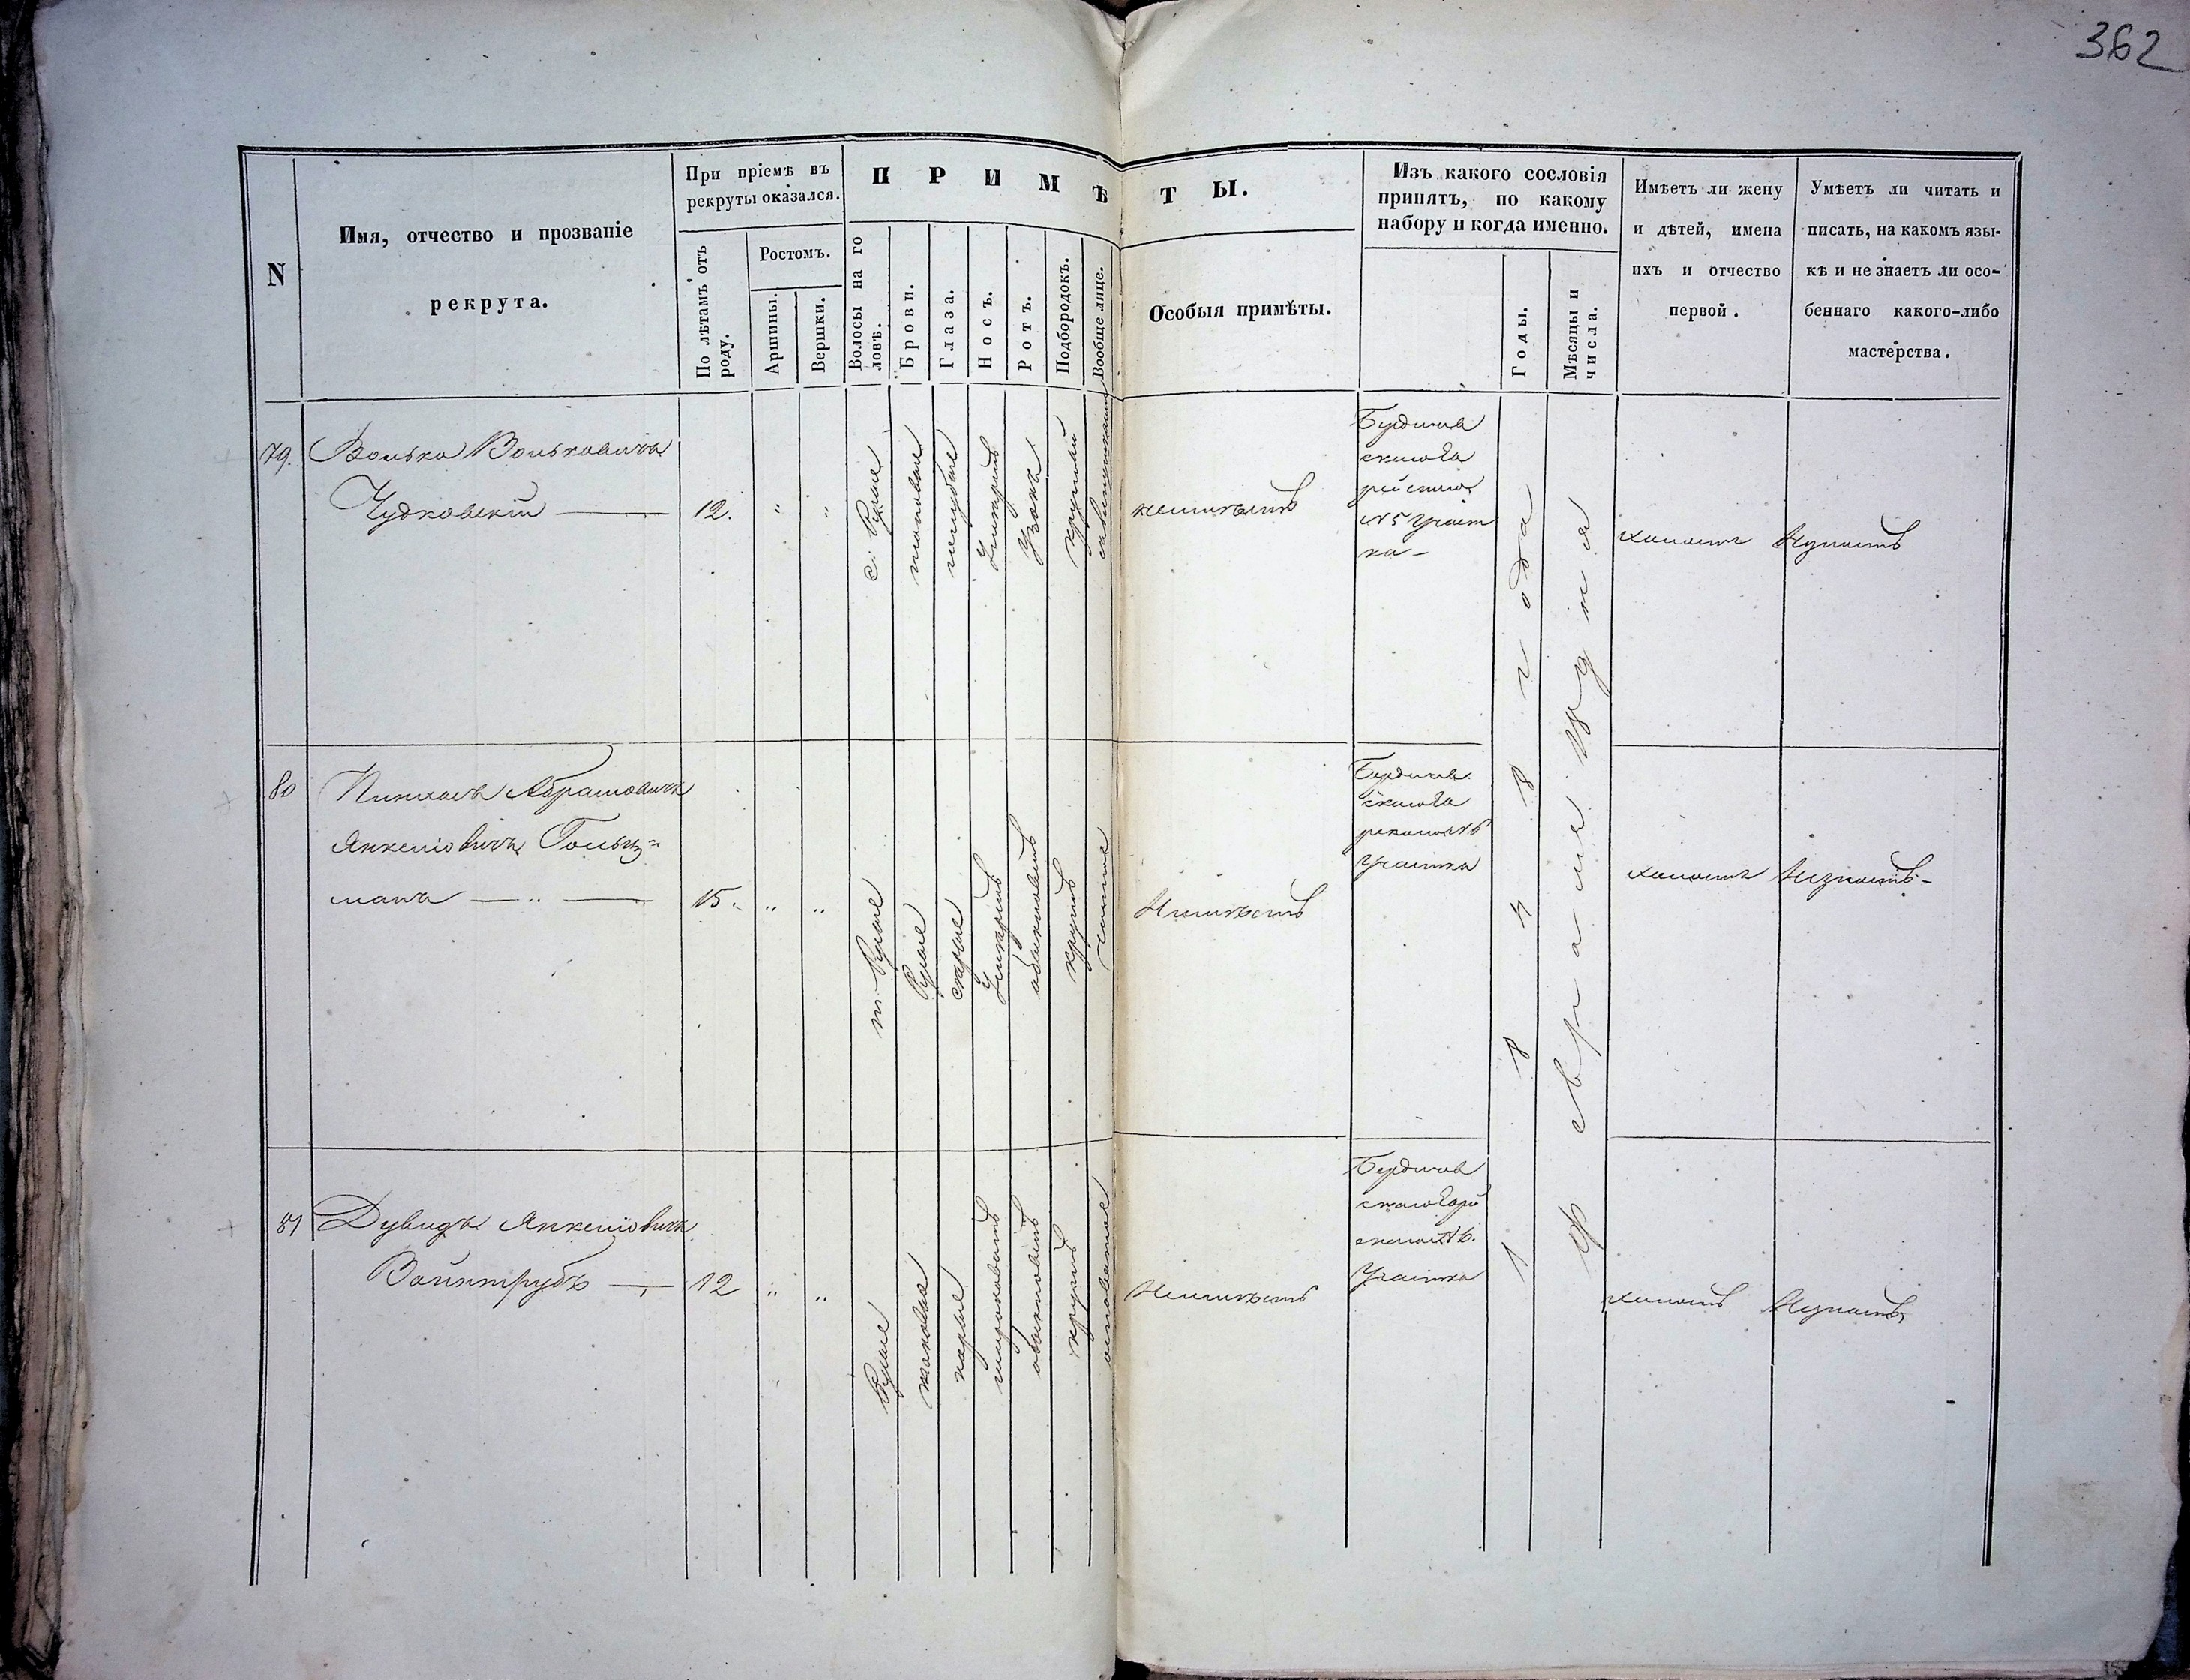 362
N
Имя, отчество и прозваніе
рекрута.
При пріемѣ въ
рекруты оказался.
По лѣтамъ отъ
роду.
Ростомъ.
Аршины.
Вершки.
ПРИМѢТЫ.
Волосы на го
ловѣ.
Брови.
Глаза.
Носъ.
Ротъ.
Подбородокъ.
Вообще лице.
Особыя примѣты.
Изъ какого сословія
принятъ, по какому
набору и когда именно.
Годы.
Мѣсяцы и
числа.
Имѣетъ ли жену
и дѣтей, имена
ихъ и отчество
первой.
Умѣетъ ли читать и
писать, на какомъ язы-
кѣ и не знаетъ ли осо-
беннаго какого-либо
мастерства.
79.
Волько Вольковичъ
Чудковскій
12.
"
"
с. Русые
узокъ
круглый
неимѣетъ
Бердичев
скаго Ев
рейскаго
№ 5 Участ
ка
1848 года
Февраля 18 дня
холостъ
80
Абрамовичъ
Янкеліовичъ Гольц=
манъ
15.
"
"
т. Русые
Русые
сѣрые
обыкновенъ
круглъ
чистое
Неимѣетъ
Бердичев
скаго Ев
Участка
холостъ
Незнаетъ
81
Дувидъ Янкеліовичъ
Вайнтрубъ
12
"
"
Русые
таковые
карие
широковатъ
обыкновенъ
круглъ
Неимѣетъ
Бердичев
скаго Еврей
Участка
холостъ
Незнаетъ